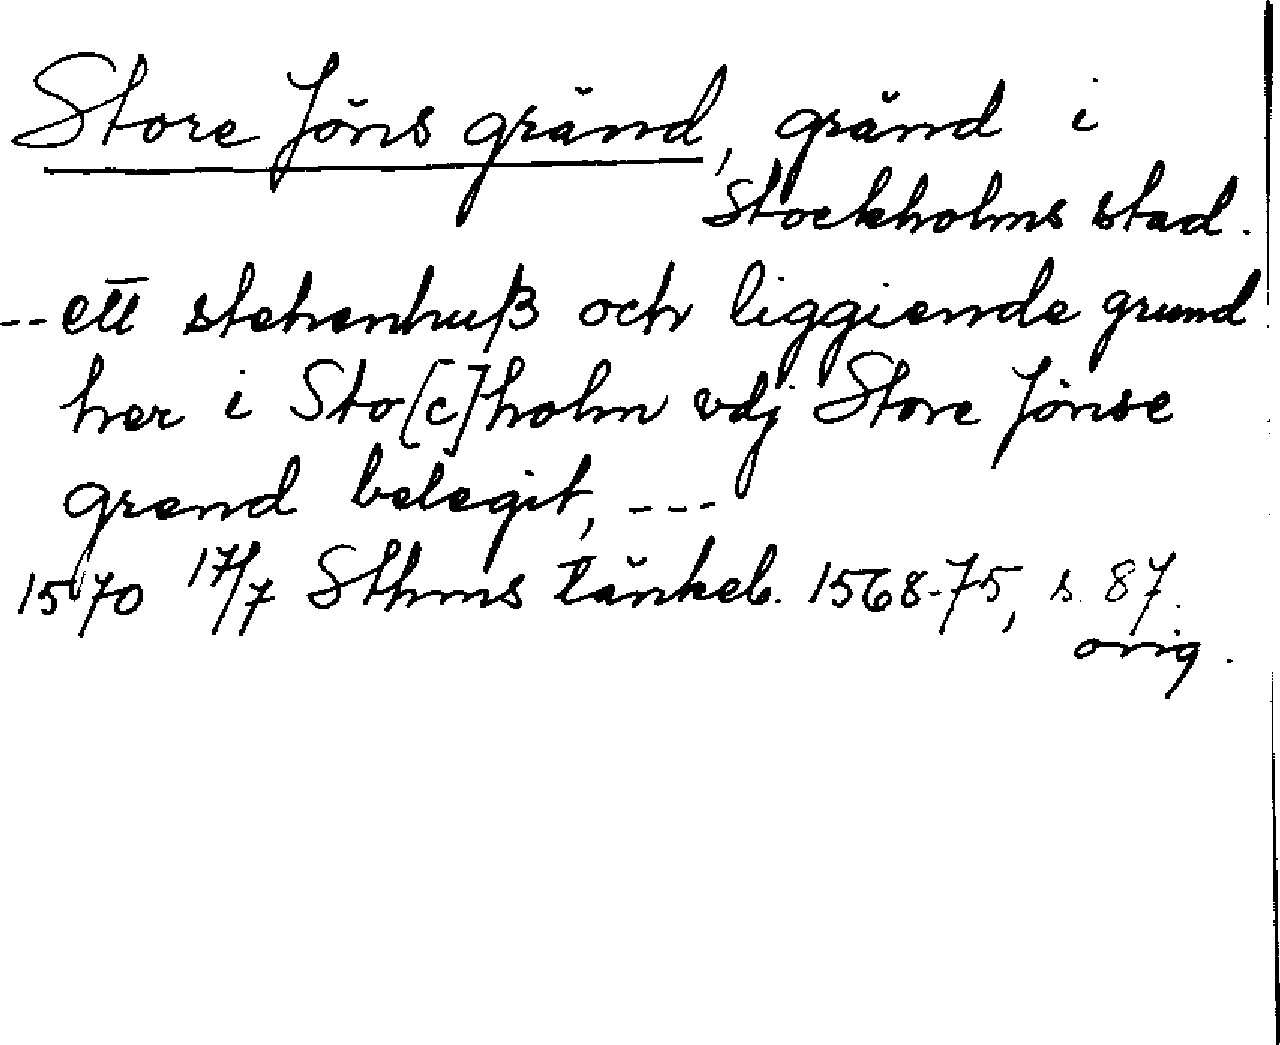 Store Jöns gränd, gränd i
Stockholms stad.
-- ett stehenhuß och liggiende grund
her i Sto[c]holm vdj Store Jönse
grend belegit, ---
1570 17/7 Sthms tänkeb. 1568-75, s. 87.
orig.